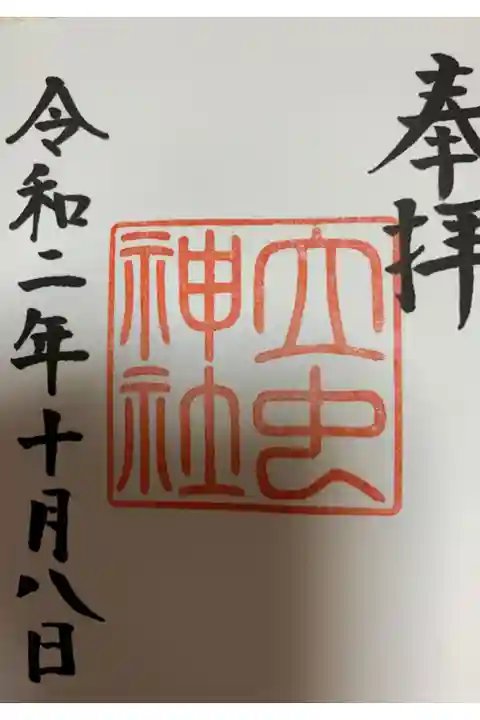 奉拝
立虫
神社
令和二年十月八日